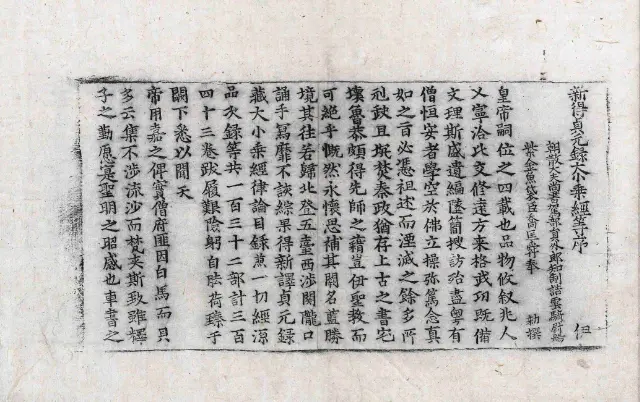 新得貞元錄大小乘經等序
伹
朝散大夫尚書駕部員外郎知制誥雲騎尉賜
紫金魚袋臣喬匡舜奉 勅撰
皇帝嗣位之四載也品物攸叙兆人
乂寧洽比交修達方來格武功既備
文理斯盛遺編墜簡搜訪殆盡粤有
僧恒安者學空於佛立操弥篤念真
如之旨必憑祖述而湮滅之餘多所
刓缺且垊焚秦政猶存上古之書宅
壞魯恭頗得先師之籍豈伊聖教而
可絕乎慨然永懷思補其闕名藍勝
境其往若歸北登五臺西涉関隴口
誦手寫靡不該綜果得新譯貞元錄
藏大小乘經律論目録荒一切經源
品次録等共一百三十二部計三百
四十三卷跋履艱險躬自胠荷臻于
闕下悉以聞天
帝用嘉之俾實僧府匪因白馬而貝
多云集不涉流沙而梵夾斯致雖釋
子之勤愿寔聖明之昭感也車書之